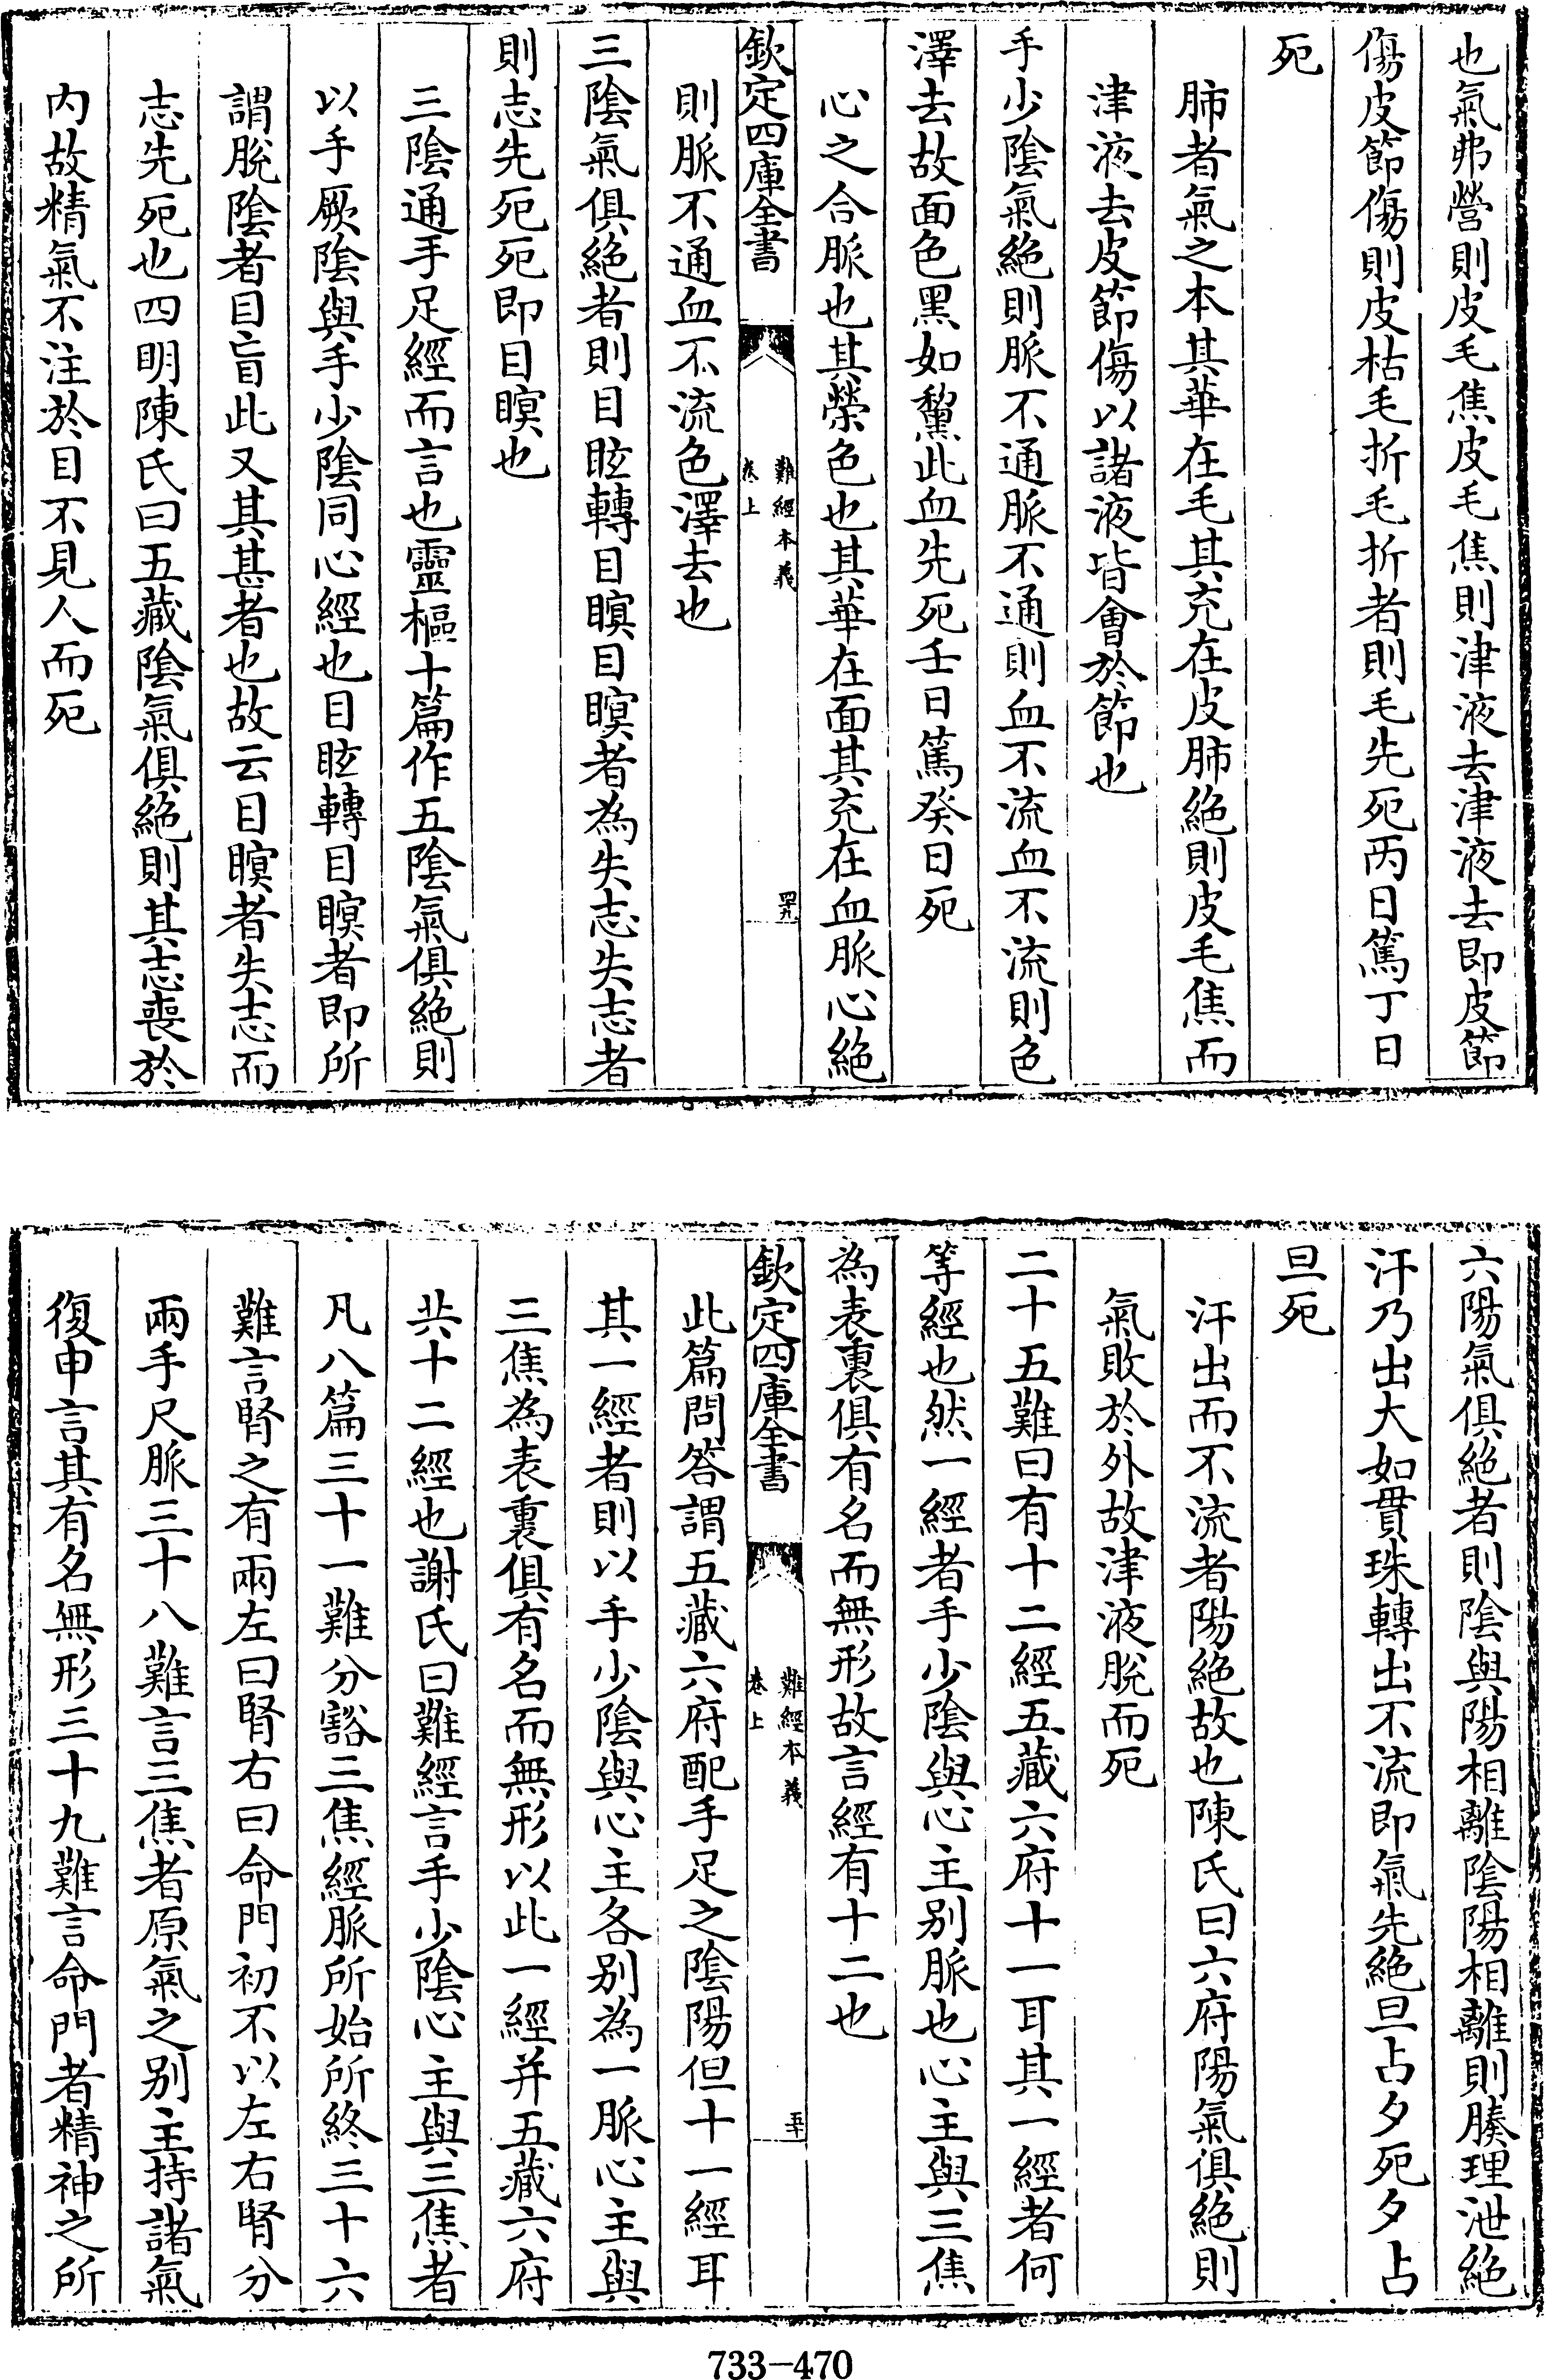 也氣弗營則皮毛焦皮毛焦則津液去津液去即皮節
傷皮節傷則皮枯毛折毛折者則毛先死丙日篤丁日
死
肺者氣之本其華在毛其充在皮肺絶則皮毛焦而
津液去皮節傷以諸液皆會於節也
手少陰氣絶則脈不通脈不通則血不流血不流則色
澤去故面色黑如黧此血先死壬日篤癸日死
心之合脈也其榮色也其華在面其充在血脈心絶
欽定四庫全書
難經本義
卷上
四九
則脈不通血不流色澤去也
三陰氣俱絶者則目眩轉目瞑目瞑者為失志失志者
則志先死死即目瞑也
三陰通手足經而言也靈樞十篇作五陰氣俱絶則
以手厥陰與手少陰同心經也目眩轉目瞑者即所
謂脫陰者目盲此又其甚者也故云目瞑者失志而
志先死也四明陳氏曰五藏陰氣俱絶則其志喪於
内故精氣不注於目不見人而死
六陽氣俱絶者則陰與陽相離陰陽相離則腠理泄絶
汗乃出大如貫珠轉出不流即氣先絶旦占夕死夕占
旦死
汗出而不流者陽絶故也陳氏曰六府陽氣俱絶則
氣敗於外故津液脫而死
二十五難曰有十二經五藏六府十一耳其一經者何
等經也然一經者手少陰與心主别脈也心主與三焦
為表裏俱有名而無形故言經有十二也
欽定四庫全書
難經本義
卷上
五十
此篇問答謂五藏六府配手足之陰陽但十一經耳
其一經者則以手少陰與心主各别為一脈心主與
三焦為表裏俱有名而無形以此一經并五藏六府
共十二經也謝氏曰難經言手少陰心主與三焦者
凡八篇三十一難分豁三焦經脈所始所終三十六
難言腎之有兩左曰腎右曰命門初不以左右腎分
兩手尺脈三十八難言三焦者原氣之别主持諸氣
復申言其有名無形三十九難言命門者精神之所
733-470